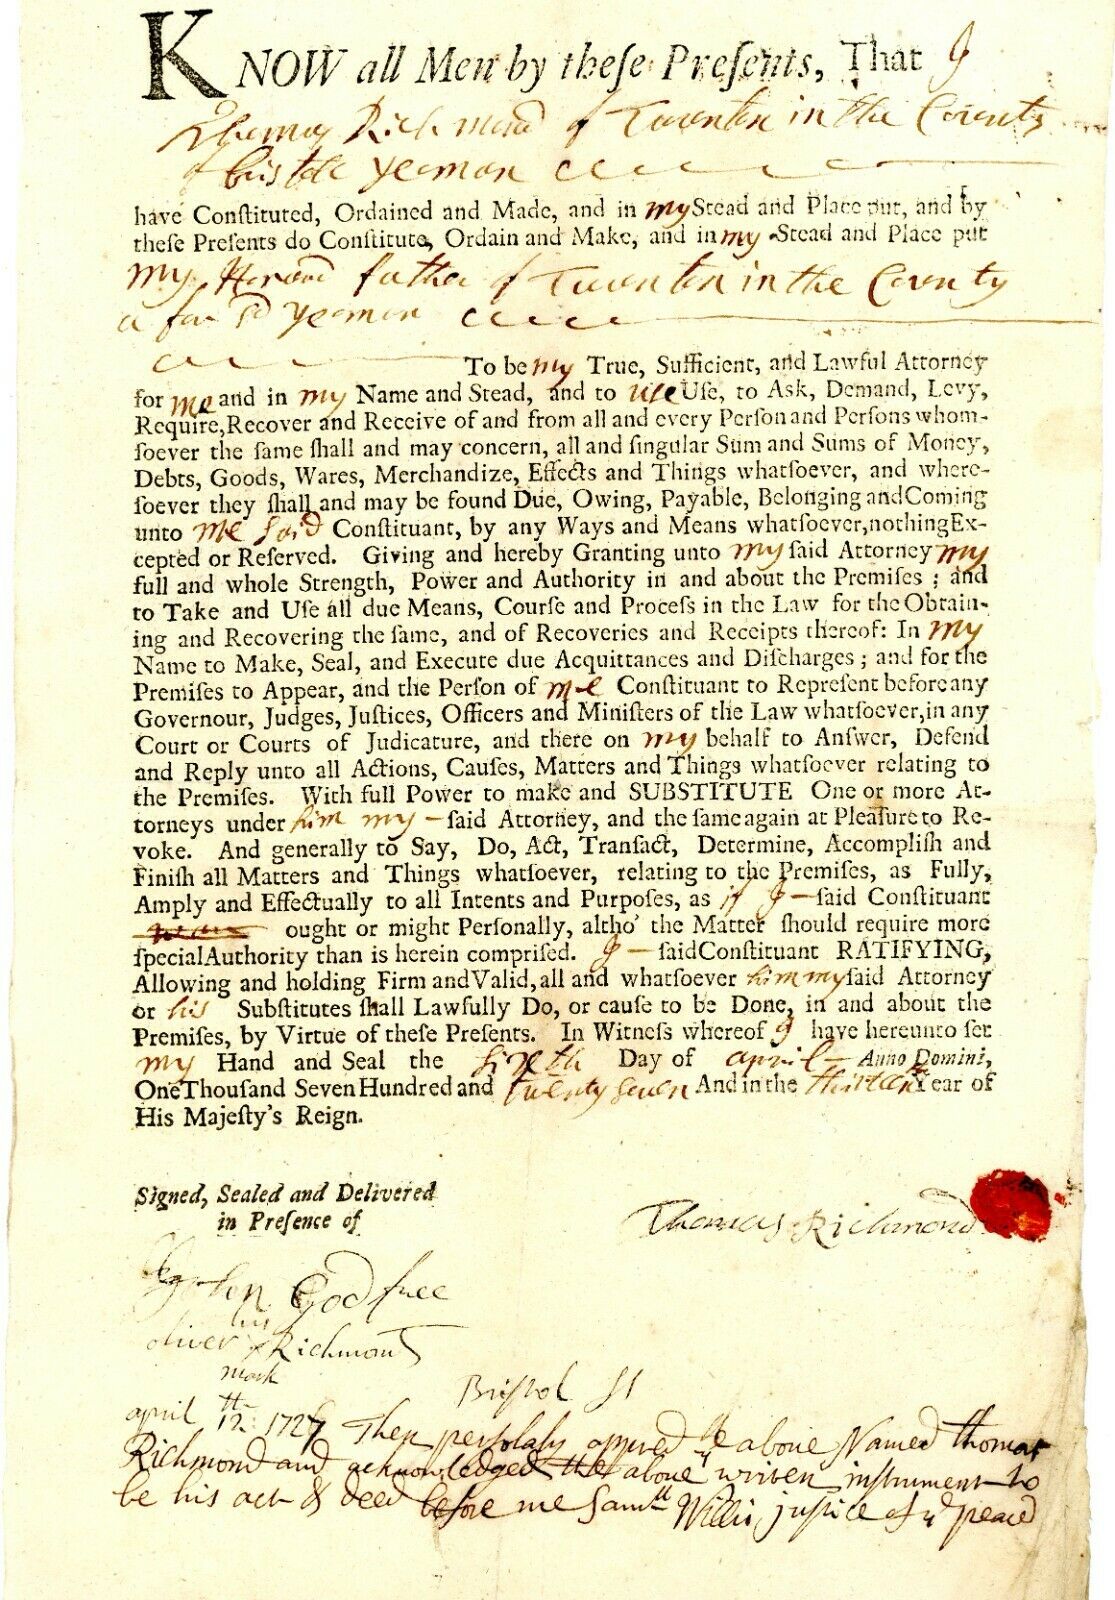 KNOW all Men by theſe Preſents, That I
Thomas Richmond of Taunton in the County
of Bristoll yeoman
have Conſtituted, Ordained and Made, and in my Stead and Place put, and by
theſe Preſents do Conſtitute, Ordain and Make, and in my Stead and Place put
my father of Taunton in the County
a for sd yeoman
To be my True, Sufficient, and Lawful Attorney
for me and in my Name and Stead, and to use Uſe, to Ask, Demand, Levy,
Require, Recover and Receive of and from all and every Perſon and Perſons whom-
ſoever the ſame ſhall and may concern, all and ſingular Sum and Sums of Money,
Debts, Goods, Wares, Merchandize, Effects and Things whatſoever, and where-
ſoever they ſhall and may be found Due, Owing, Payable, Belonging and Coming
unto me said Conſtituant, by any Ways and Means whatſoever, nothing Ex-
cepted or Reſerved. Giving and hereby Granting unto my ſaid Attorney my
full and whole Strength, Power and Authority in and about the Premiſes ; and
to Take and Uſe all due Means, Courſe and Proceſs in the Law for the Obtain-
ing and Recovering the ſame, and of Recoveries and Receipts thereof: In my
Name to Make, Seal, and Execute due Acquittances and Diſcharges ; and for the
Premiſes to Appear, and the Perſon of me Conſtituant to Repreſent before any
Governour, Judges, Juſtices, Officers and Miniſters of the Law whatſoever, in any
Court or Courts of Judicature, and there on my behalf to Anſwer, Defend
and Reply unto all Actions, Cauſes, Matters and Things whatſoever relating to
the Premiſes. With full Power to make and SUBSTITUTE One or more At-
torneys under him my ſaid Attorney, and the ſame again at Pleaſure to Re-
voke. And generally to Say, Do, Act, Tranſact, Determine, Accompliſh and
Finiſh all Matters and Things whatſoever, relating to the Premiſes, as Fully,
Amply and Effectually to all Intents and Purpoſes, as if I ſaid Conſtituant
ought or might Perſonally, altho' the Matter ſhould require more
ſpecial Authority than is herein compriſed. I ſaid Conſtituant RATIFYING,
Allowing and holding Firm and Valid, all and whatſoever him my ſaid Attorney
or his Subſtitutes ſhall Lawfully Do, or cauſe to be Done, in and about the
Premiſes, by Virtue of theſe Preſents. In Witneſs whereof I have hereunto ſet
my Hand and Seal the sixth Day of april Anno Domini,
One Thouſand Seven Hundred and twenty seven And in the thirteen Year of
His Majeſty's Reign.
Signed, Sealed and Delivered
in Preſence of
Thomas Richmond
John Godfree
his
oliver x Richmont
mark
Bristol ss
april 12th: 1727 Then persolaly appered ye above Named Thomas
Richmond and acknowledged the above writen instrument to
be his act & deed before me Samll Willis justice of ye peace